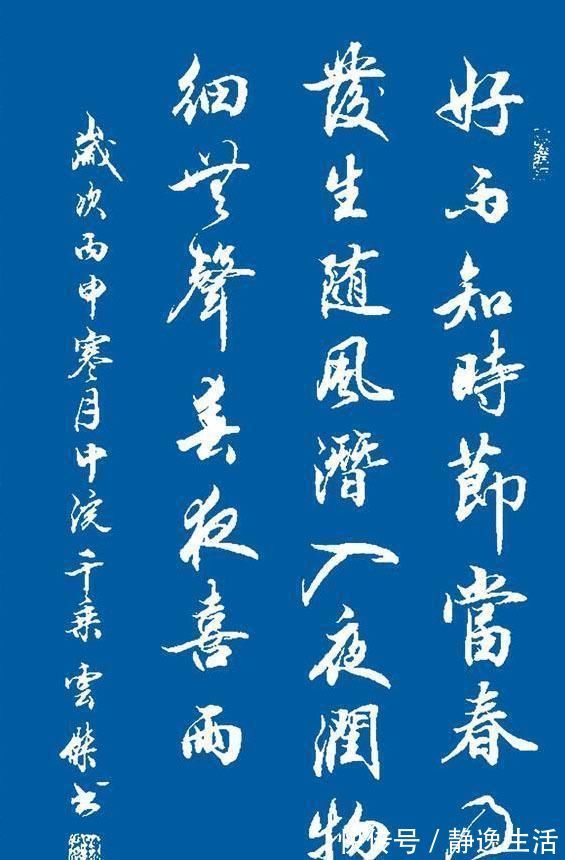 好雨知時節當春乃
發生随風潛入夜潤物
細無聲春夜喜雨
歲次丙申寒月中浣千乘雲傑書
快传号 / 静逸生活